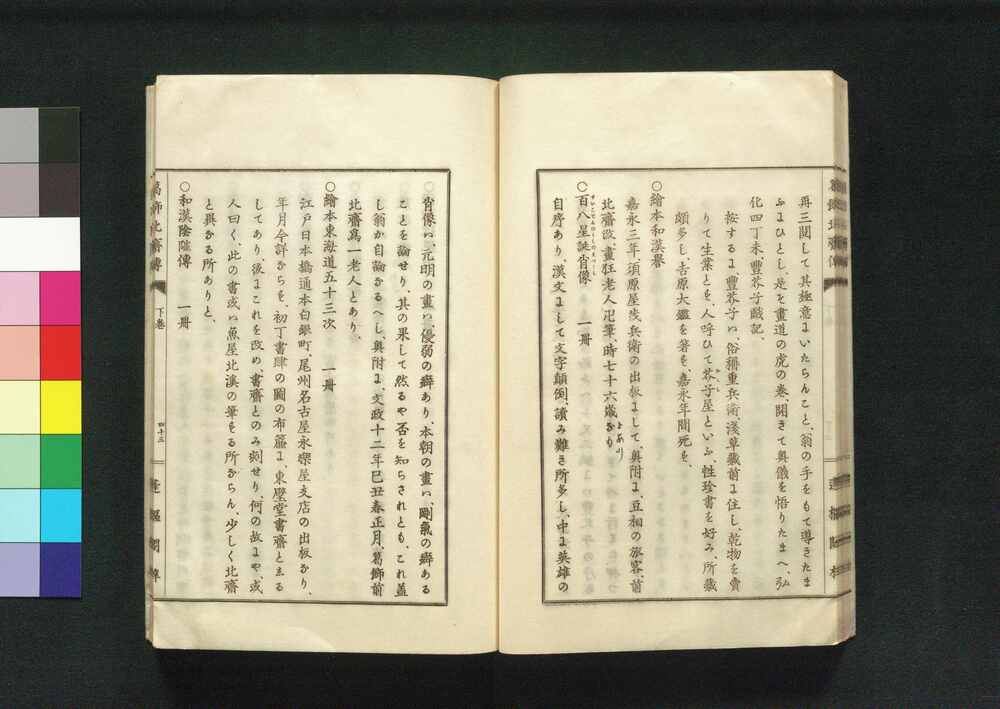 再三閲して、其極意よいたらんこと、翁の手をもて導きたま
ふよひとし、是を畫道の虎の巻、開きて奥儀を悟りたまへ、弘
化四丁未、豐芥子戯記、
按するよ、豐芥子ハ、俗稱重兵衛、淺草藏前よ住し、乾物を賣
りて生業とを、人呼ひて芥子屋といふ、性珍書を好み、所藏
頗多し、吉原大鑑を著を、嘉永年間死を、
○繪本和漢譽
嘉永三年、須原屋茂兵衛の出板よして、奥附よ、豆相の旅客、前
北齋改、畫狂老人卍筆、時七十六歳なり
とあり
○百八星誕肖像 一冊
自序あり、漢文よして文字顛倒、讀み難き所多し、中よ英雄の
肖像ハ、元明の畫ハ、優弱の癖あり、本朝の畫ハ、剛氣の癖ある
ことを論せり、其の果して然るや否を知らされとも、これ蓋
し翁か自論なるへし、奥附よ、文政十二年己丑春正月、葛飾前
北齋爲一老人とあり、
○繪本東海道五十三次 一冊
江戸日本橋通本白銀町、尾州名古屋永樂屋支店の出板なり、
年月今詳ならを、初丁書肆の圖の布簾よ、東壁堂書齋とゑる
してあり、後よこれを改め、書齋とのみ刻せり、何の故よや、或
人曰く、此の書或ハ魚屋北溪の筆をる所ならん、少しく北齋
と異なる所ありと、
○和漢陰隲傳 一冊
葛飾北齋傳
下巻
四十三
蓬樞閣梓